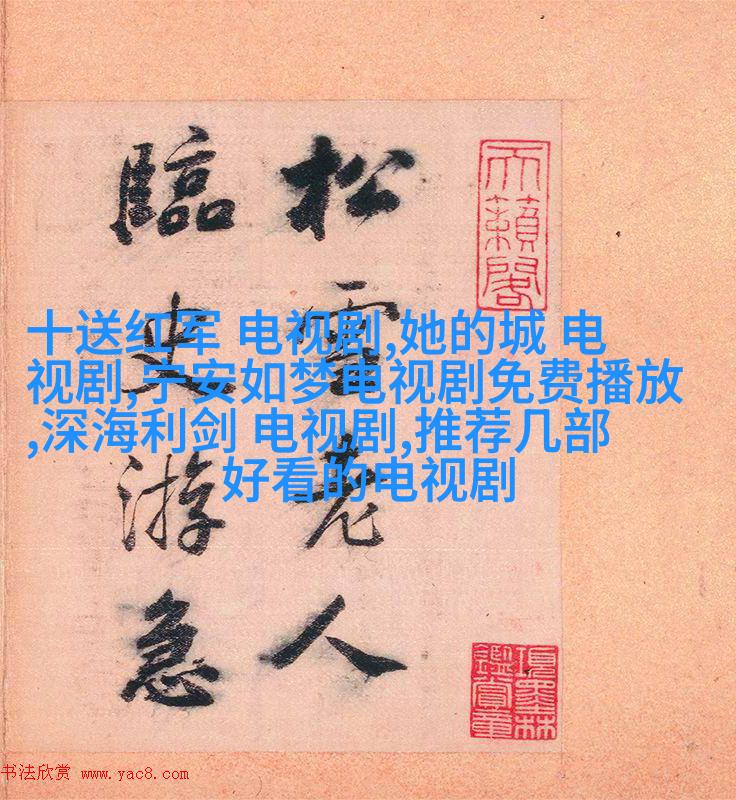 十送红军 电视剧,她的城 电
视剧,宁安如梦电视剧免费播放
,深海利剑 电视剧,推荐几部
好看的电视剧
天籟閣
松雪老人
臨史游急
項墨林
鑑賞章
书法欣赏 www.yac8.com